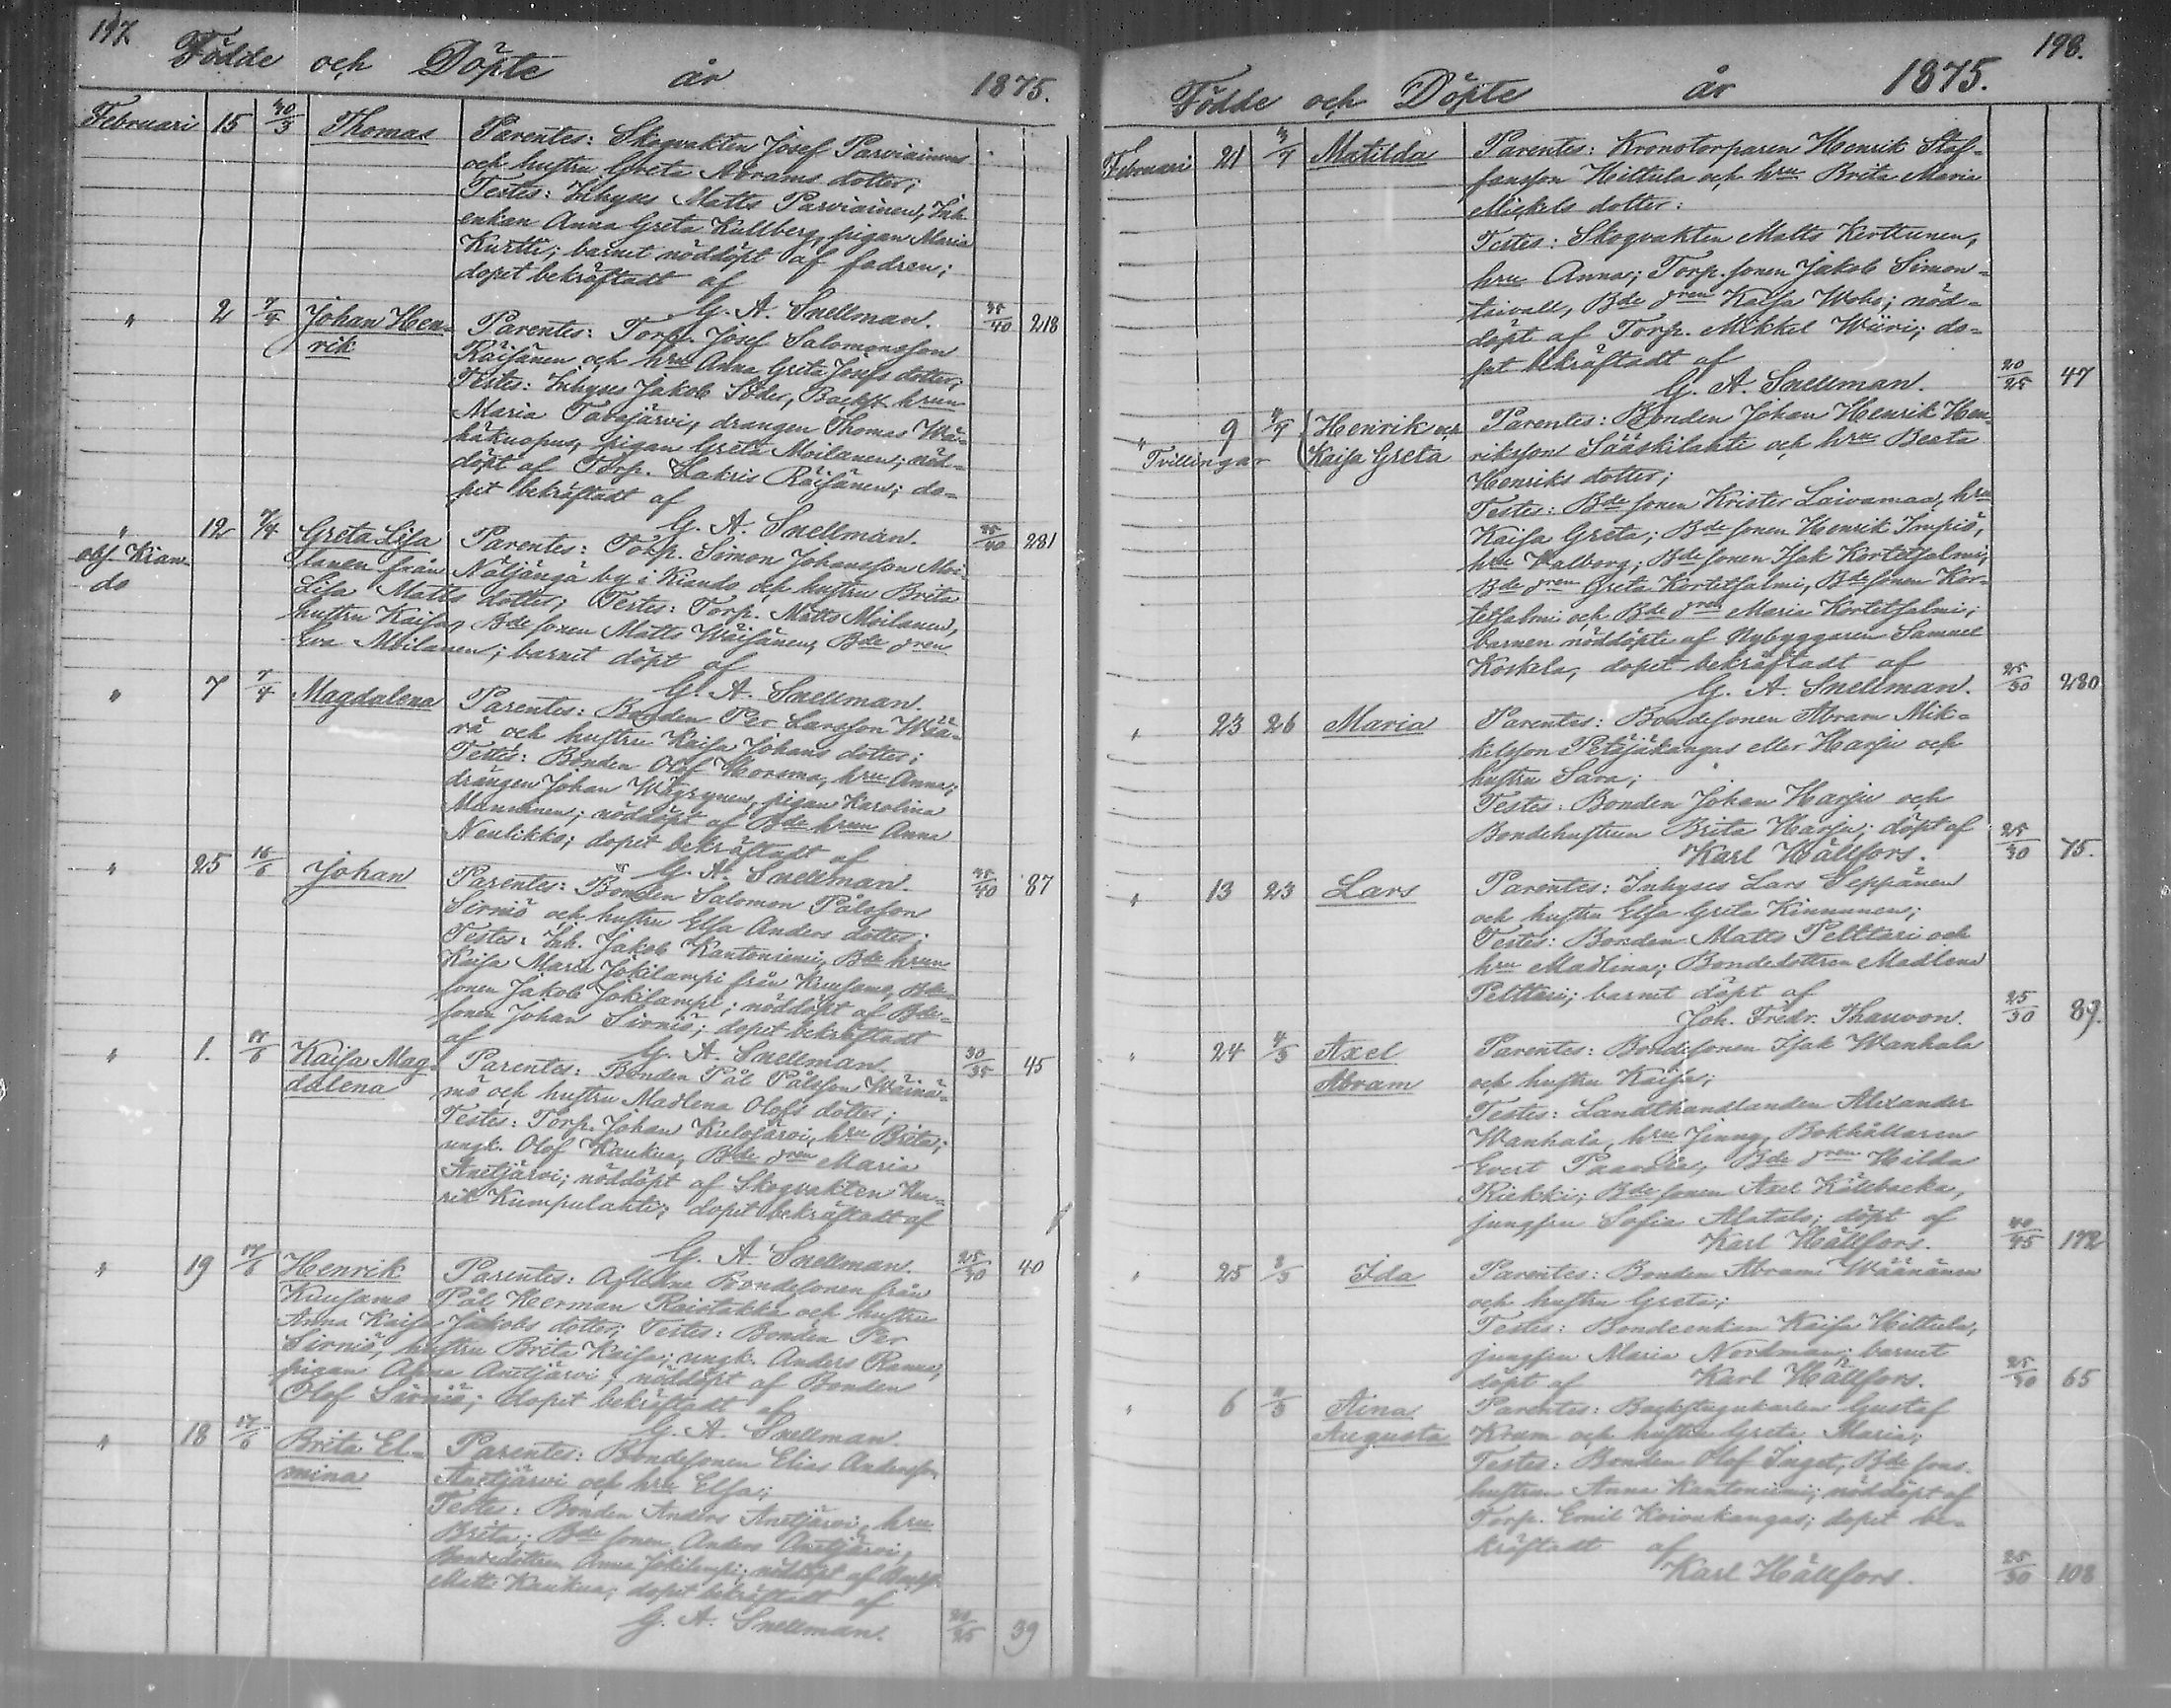 197
Födde och Döpte år 1875.
Februari 15 30/3 Thomas Parentes: Skogvakten Josef Parviainens
och hustru Greta Abrams dotter;
Testes: Inhyses Matts Parviainen, Inh.
enkan Anna Greta Kullberg, pigan Maria
Kurtti; barnet nöddöpt af fadren;
dopet bekräftadt af
G. A. Snellman. 35/40 218
" 2 7/4 Johan Hen- Parentes: Torp. Josef Salomonsson
rik Räisänen och hru Anna Greta Josefs dotter;
Testes: Inhyses Jakob Söder, Backst. hrun
Maria Tavajärvi, drängen Thomas Wä-
häkuopus, pigan Greta Moilanen; nöd-
döpt af Torp. Zakris Räisänen; do-
pet bekräftadt af
G. A. Snellman. 35/40 281
" 12 7/4 Greta Lisa Parentes: Torp. Simon Johansson Moi-
obs. Kian- lanen från Näljängä by i Kiando och hustru Brita
do Lisa Matts dotter; Testes: Torp. Matts Moilanen,
hustru Kaisa, Bde sonen Matts Wäisänen, Bde dren
Eva Moilanen; barnet döpt af
G. A. Snellman.
" 7 7/4 Magdalena Parentes: Bonden Per Larsson Wää-
rä och hustru Kaisa Johans dotter;
Testes: Bonden Olof Horsma, hru Anna;
drängen Johan Wäyrynen, pigan Karolina
Manninen; nöddöpt af Bde hrun Anna
Neulikko; dopet bekräftadt af
G. A. Snellman. 35/40 87
" 25 16/6 Johan Parentes: Bonden Salomon Pålsson
Sirniö och hustru Elsa Anders dotter;
Testes: Inh. Jakob Kantoniemi, Bde hrun
Kaisa Maria Jokilampi från Kuusamo, Bde
sonen Jakob Jokilampi; nöddöpt af Bde-
sonen Johan Sirniö; dopet bekräftadt
af G. A. Snellman. 30/35 45
" 1. 17/6 Kaisa Mag- Parentes: Bonden Pål Pålsson Wäinä-
dalena mö och hustru Madlena Olofs dotter;
Testes: Torp. Johan Kielojärvi, hru Brita;
ungk. Olof Kaukua, Bde dren Maria
Anetjärvi; nöddöpt af Skogvakten Hen-
rik Kumpulahti; dopet bekräftadt af
G. A. Snellman. 25/30 40
" 19 17/6 Henrik Parentes: Aflidne Bondesonen från
Kuusamo Pål Herman Raistakka och hustru
Anna Kaisa Jakobs dotter; Testes: Bonden Per
Sirniö, hustru Brita Kaisa; ungk. Anders Ranua,
pigan Anna Anetjärvi; nöddöpt af Bonden
Olof Sirniö; dopet bekräftadt af
G. A. Snellman.
" 18 17/6 Brita El- Parentes: Bondesonen Elias Andersson
mina Anetjärvi och hru Elsa;
Testes: Bonden Anders Anetjärvi, hru
Brita; Bde sonen Anders Anetjärvi,
Bondedottren Anna Jokilampi; nöddöpt af Backst.
Matts Kaukua; dopet bekräftadt af
G. A. Snellman. 20/25 39
198.
Födde och Döpte år 1875.
Februari 21 Matilda Parentes: Kronotorparen Henrik Staf-
fansson Hiltula och hru Brita Maria
Mickels dotter:
Testes: Skogvakten Matts Kerttunen,
hru Anna; Torp. sonen Jakob Simon-
taivall, Bde dren Kaisa Wohs; nöd-
döpt af Torp. Mikkel Wiiri; do-
pet bekräftadt af
G. A. Snellman. 20/25 47
" 9 Henrik och Parentes: Bonden Johan Henrik Hen-
Tvillingar Kaisa Greta riksson Sääskilahti och hru Beata
Henriks dotter;
Testes: Bde sonen Krister Laivamaa, hru
Kaisa Greta; Bde sonen Henrik Impiö,
hru Walborg; Bde sonen Isak Kortetsalmi,
Bde dren Greta Kortetsalmi, Bde sonen Kor-
tetsalmi och Bde dren Maria Kortetsalmi;
barnen nöddöpte af Nybyggaren Samuel
Koskela, dopet bekräftadt af
G. A. Snellman. 25/30 280
" 23 26 Maria Parentes: Bondesonen Abram Mik-
kelsson Petäjäkangas eller Harju och
hustru Sara;
Testes: Bonden Johan Harju och
Bondehustrun Brita Harju; döpt af
Karl Hällfors. 25/30 75.
" 13 23 Lars Parentes: Inhyses Lars Seppänen
och hustru Elsa Greta Kinnunen;
Testes: Bonden Matts Pelttari och
hru Madlina; Bondedottren Madlena
Pelttari; barnet döpt af
Joh. Fredr. Thauvon. 25/30 89.
" 24 4/3 Axel Parentes: Bondesonen Isak Wanhala
Abram och hustru Kaisa;
Testes: Landthandlanden Alexander
Wanhala, hru Jinny, Bokhållaren
Evert Paavola, Bde dren Hilda
Riekki; Bde sonen Axel Källbacka,
jungfru Sofia Alatalo; döpt af
Karl Hällfors. 40/45 172
" 25 8/3 Ida Parentes: Bonden Abram Wäänänen
och hustru Greta;
Testes: Bondeenkan Kaisa Hiltula,
jungfru Maria Nordman; barnet
döpt af Karl Hällfors. 25/30 65
" 6 Aina Parentes: Backstugukarlen Gustaf
Augusta Kram och hustru Greta Maria;
Testes: Bonden Olof Inget, Bde sons-
hustrun Anna Kantoniemi; nöddöpt af
Torp. Emil Koivukangas; dopet be-
kräftadt af
Karl Hällfors. 25/30 108